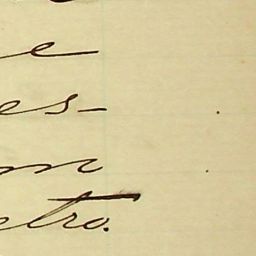 e
es-
m
etro.